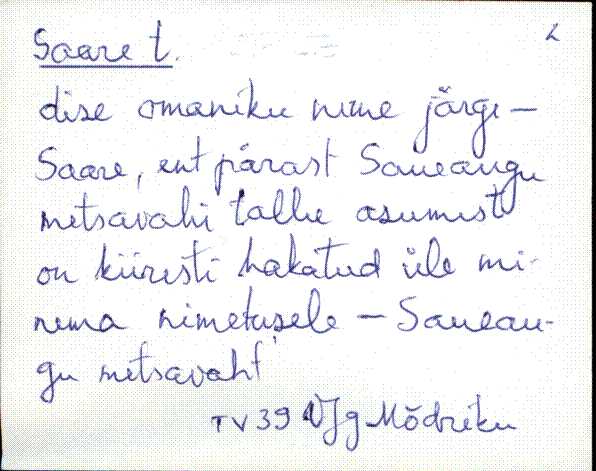 2
Saare t.
dise omaniku nime järgi –
Saare, ent pärast Saueaugu
metsavahi tallu asumist
on kiiresti hakatud üle mi-
nema nimetusele – Saueau-
gu metsavaht
TV 39 VJg Mõdriku